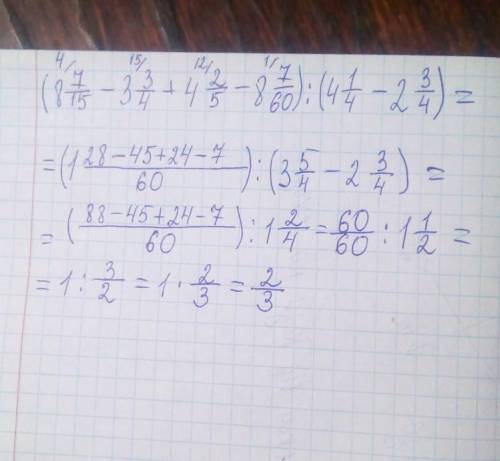 4/ 15/ 12/ 1/
(8 7/15 − 3 3/4 + 4 2/5 − 8 7/60) : (4 1/4 − 2 3/4) =
= (1 28−45+24−7/60) : (3 5/4 − 2 3/4) =
= (88−45+24−7/60) : 1 2/4 = 60/60 : 1 1/2 =
= 1 : 3/2 = 1 · 2/3 = 2/3